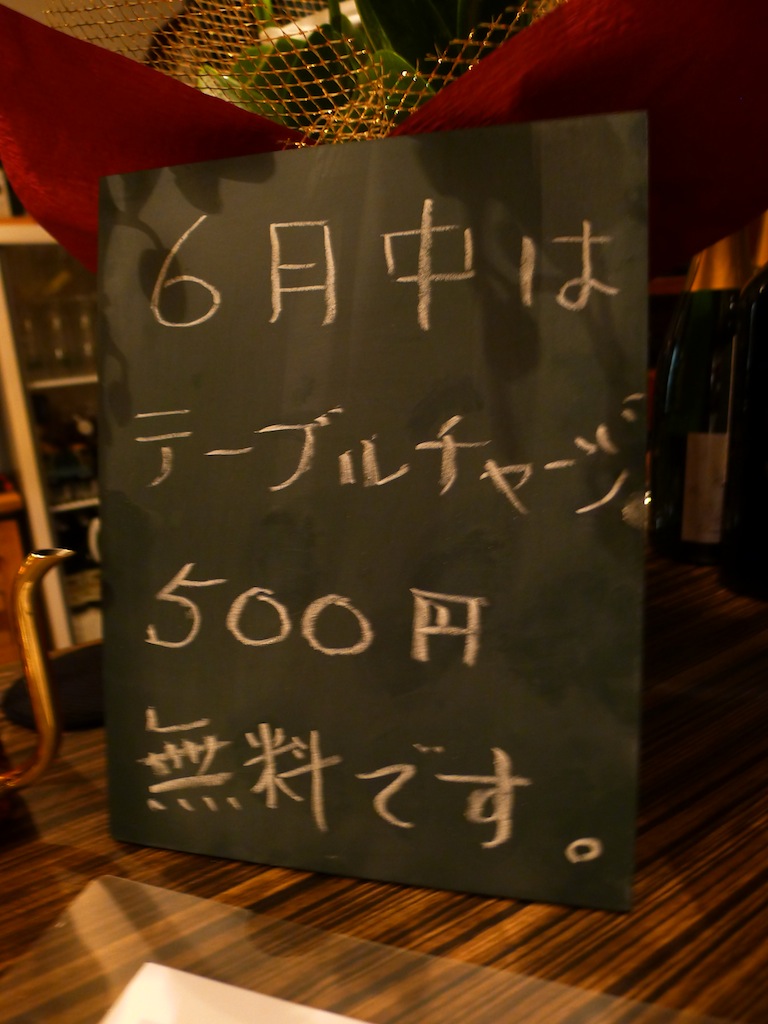 6月中は
テーブルチャージ
500円
無料です。